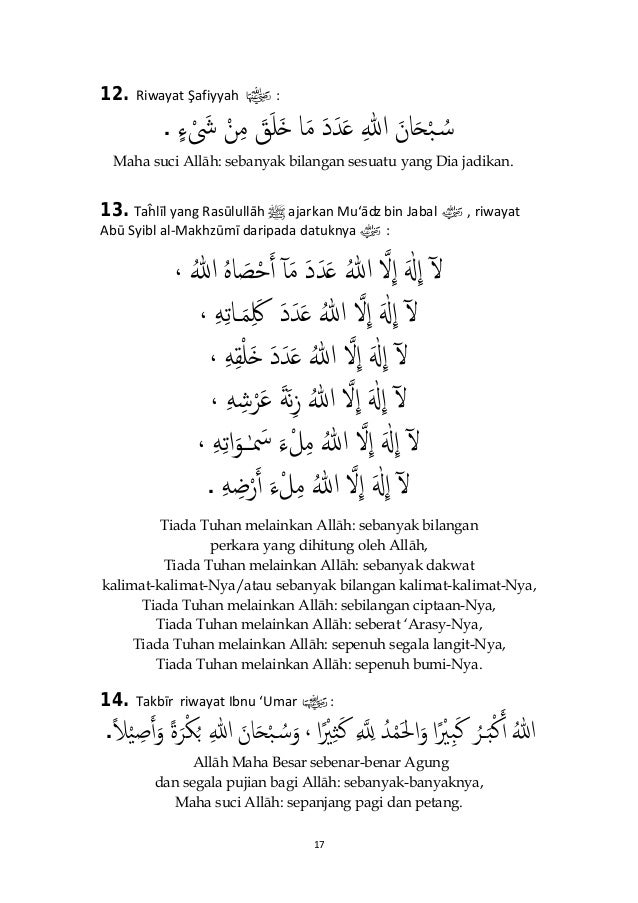 12. Riwayat Şafiyyah :
سُبْحَانَ اللهِ عَدَدَ مَا خَلَقَ مِنْ شَىْءٍ .
Maha suci Allāh: sebanyak bilangan sesuatu yang Dia jadikan.
13. Taĥlīl yang Rasūlullāh ﷺ ajarkan Mu‘ādz bin Jabal , riwayat
Abū Syibl al-Makhzūmī daripada datuknya :
لآ إِلَٰهَ إِلَّا اللهُ عَدَدَ مَآ أَحْصَاهُ اللهُ ،
لآ إِلَٰهَ إِلَّا اللهُ عَدَدَ كَلِمَـاتِهِ ،
لآ إِلَٰهَ إِلَّا اللهُ عَدَدَ خَلْقِهِ ،
لآ إِلَٰهَ إِلَّا اللهُ زِنَةَ عَرْشِهِ ،
لآ إِلَٰهَ إِلَّا اللهُ مِلْءَ سَمَٰـوَاتِهِ ،
لآ إِلَٰهَ إِلَّا اللهُ مِلْءَ أَرْضِهِ .
Tiada Tuhan melainkan Allāh: sebanyak bilangan
perkara yang dihitung oleh Allāh,
Tiada Tuhan melainkan Allāh: sebanyak dakwat
kalimat-kalimat-Nya/atau sebanyak bilangan kalimat-kalimat-Nya,
Tiada Tuhan melainkan Allāh: sebilangan ciptaan-Nya,
Tiada Tuhan melainkan Allāh: seberat ‘Arasy-Nya,
Tiada Tuhan melainkan Allāh: sepenuh segala langit-Nya,
Tiada Tuhan melainkan Allāh: sepenuh bumi-Nya.
14. Takbīr riwayat Ibnu ‘Umar :
اللهُ أَكْبَـرُ كَبِيْرًا وَالْحَمْدُ لِلَّهِ كَثِيْرًا ، وَسُبْحَانَ اللهِ بُكْرَةً وَأَصِيْلاً.
Allāh Maha Besar sebenar-benar Agung
dan segala pujian bagi Allāh: sebanyak-banyaknya,
Maha suci Allāh: sepanjang pagi dan petang.
17